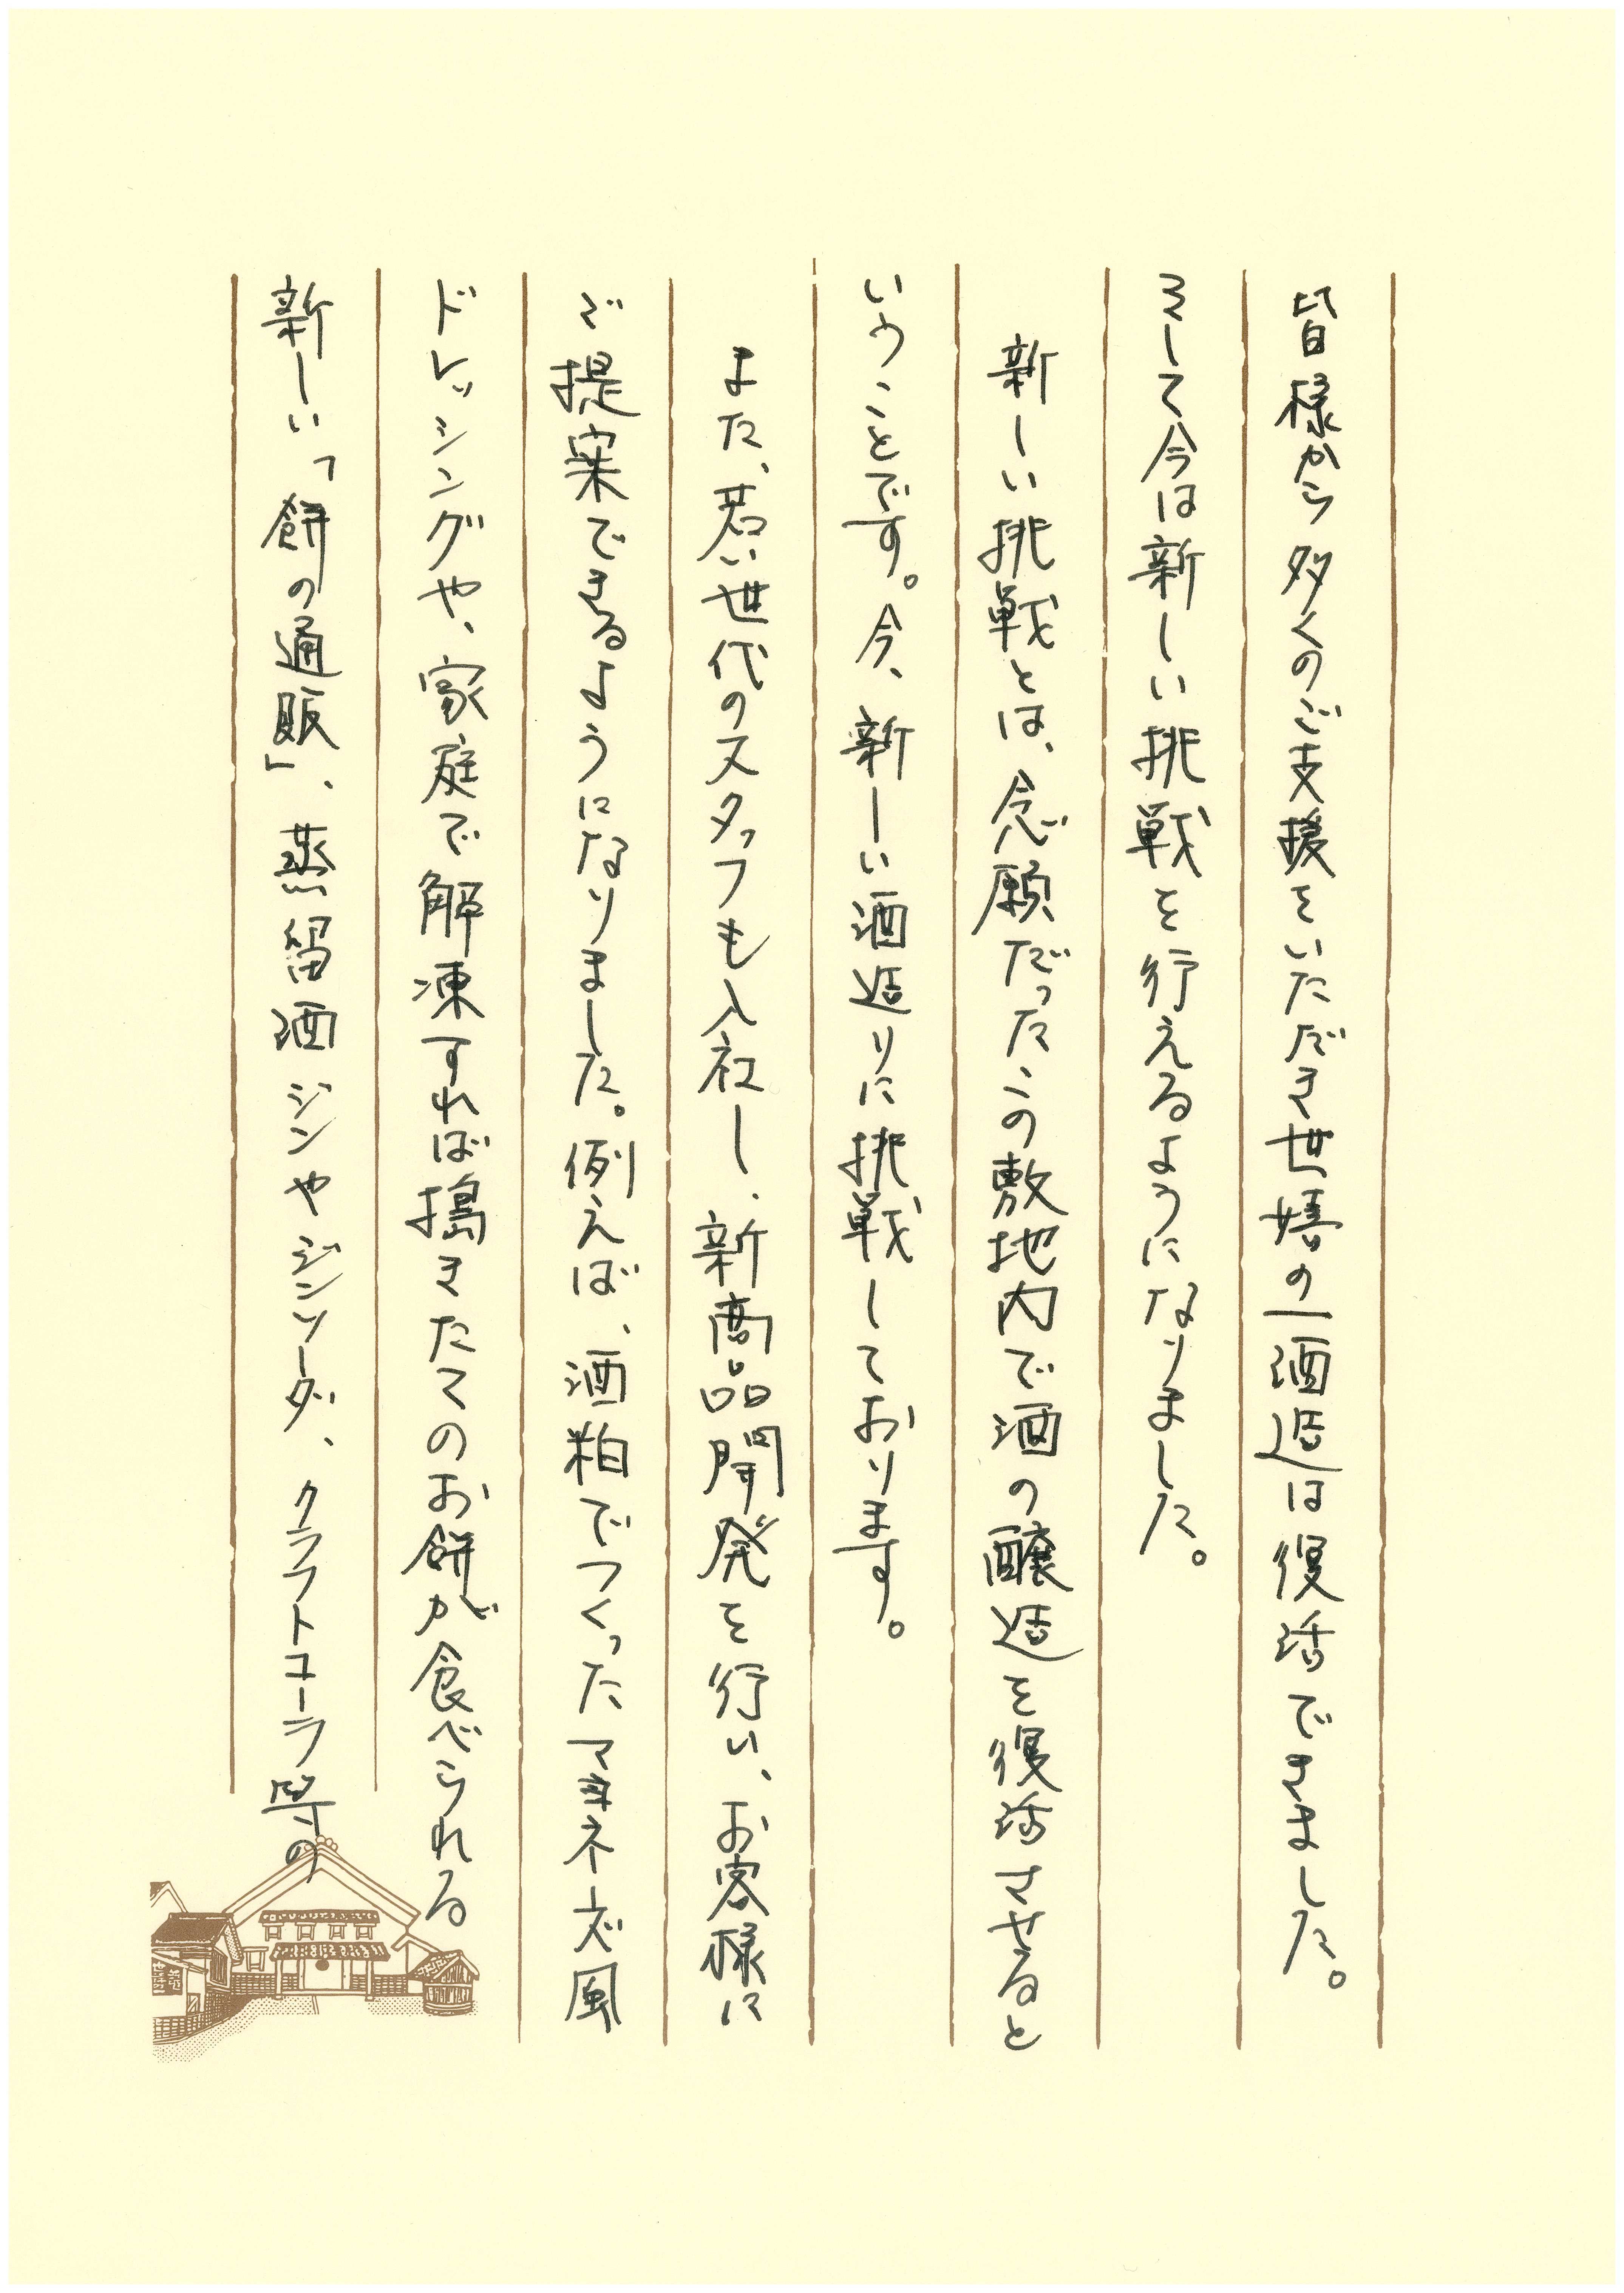 皆様から多くのご支援をいただき世嬉の一酒造は復活できました。
そして今は新しい挑戦を行えるようになりました。
新しい挑戦とは、念願だったこの敷地内で酒の醸造を復活させると
いうことです。今、新しい酒造りに挑戦しております。
また、若い世代のスタッフも入社し、新商品開発を行い、お客様に
ご提案できるようになりました。例えば、酒粕でつくったマヨネーズ風
ドレッシングや、家庭で解凍すれば搗きたてのお餅が食べられる
新しい「餅の通販」、蒸留酒ジンやジンソーダ、クラフトコーラ等の